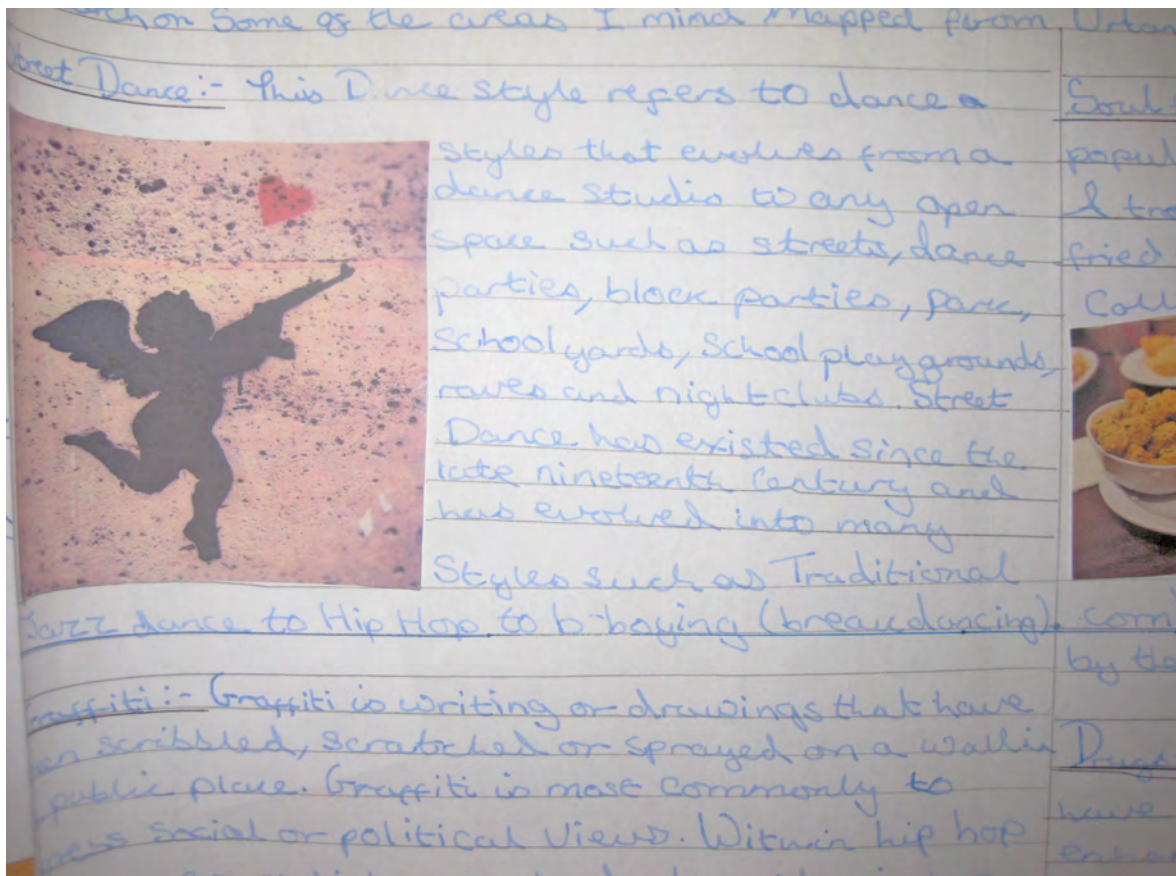 on Some of the areas I mind mapped from Urban
Street Dance:- This Dance style refers to dance
styles that evolves from a
dance studio to any open
space such as streets, dance
parties, block parties, park,
school yards, school playgrounds,
raves and nightclubs. Street
Dance has existed since the
late nineteenth Century and
has evolved into many
Styles such as Traditional
Jazz dance to Hip Hop to b-boying (breakdancing).
Graffiti:- Graffiti is writing or drawings that have
scribbled, scratched or sprayed on a wall in
public place. Graffiti is most commonly to
social or political views. Within hip hop
Soul
popul
& tra
fried
Coll
com
by the
Drugs
have
enhan